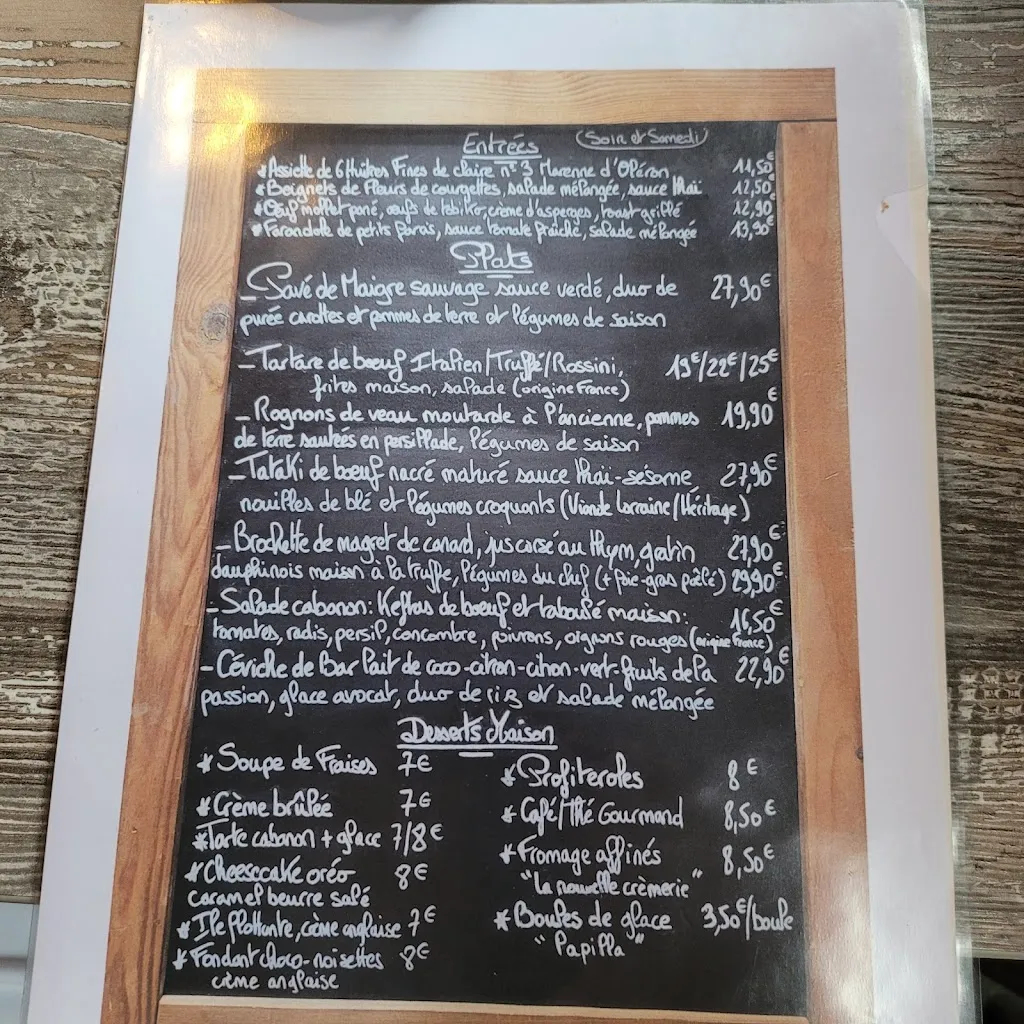 Entrées (Soir et Samedi)
*Assiette de 6 Huîtres Fines de claire n°3 Marenne d'Oléron 11,50€
*Beignets de fleurs de courgettes, salade mélangée, sauce thaï 12,50€
*Œuf mollet pané, œufs de tobiko, crème d'asperges, toast grillé 12,90€
*Farandole de petits farcis, sauce tomate fraîche, salade mélangée 13,90€
Plats
_ Pavé de Maigre sauvage sauce verdé, duo de 27,90€
purée carottes et pommes de terre et légumes de saison
- Tartare de boeuf Italien/Truffé/Rossini, 19€/22€/25€
frites maison, salade (origine France)
_ Rognons de veau moutarde à l'ancienne, pommes 19,90€
de terre sautées en persillade, légumes de saison
_ Tataki de boeuf nacré maturé sauce thaï-sésame 27,90€
nouilles de blé et légumes croquants (Viande Lorraine/Héritage)
_ Brochette de magret de canard, jus corsé au thym, gratin 27,90€
dauphinois maison à la truffe, légumes du chef (+ foie-gras poêlé) 29,90€
- Salade cabanon: Keftas de boeuf et taboulé maison: 16,50€
tomates, radis, persil, concombre, poivrons, oignons rouges (origine France)
- Céviche de Bar lait de coco-citron-citron-vert-fruits de la 22,90€
passion, glace avocat, duo de riz et salade mélangée
Desserts Maison
* Soupe de Fraises 7€
* Crème brûlée 7€
*Tarte cabanon + glace 7/8€
* Cheesecake oréo 8€
caramel beurre salé
* Ile flottante, crème anglaise 7€
* Fondant choco-noisettes 8€
crème anglaise
* Profiteroles 8€
* Café/Thé Gourmand 8,50€
* Fromage affinés 8,50€
"La nouvelle crèmerie"
* Boules de glace 3,50€/boule
"Papilla"